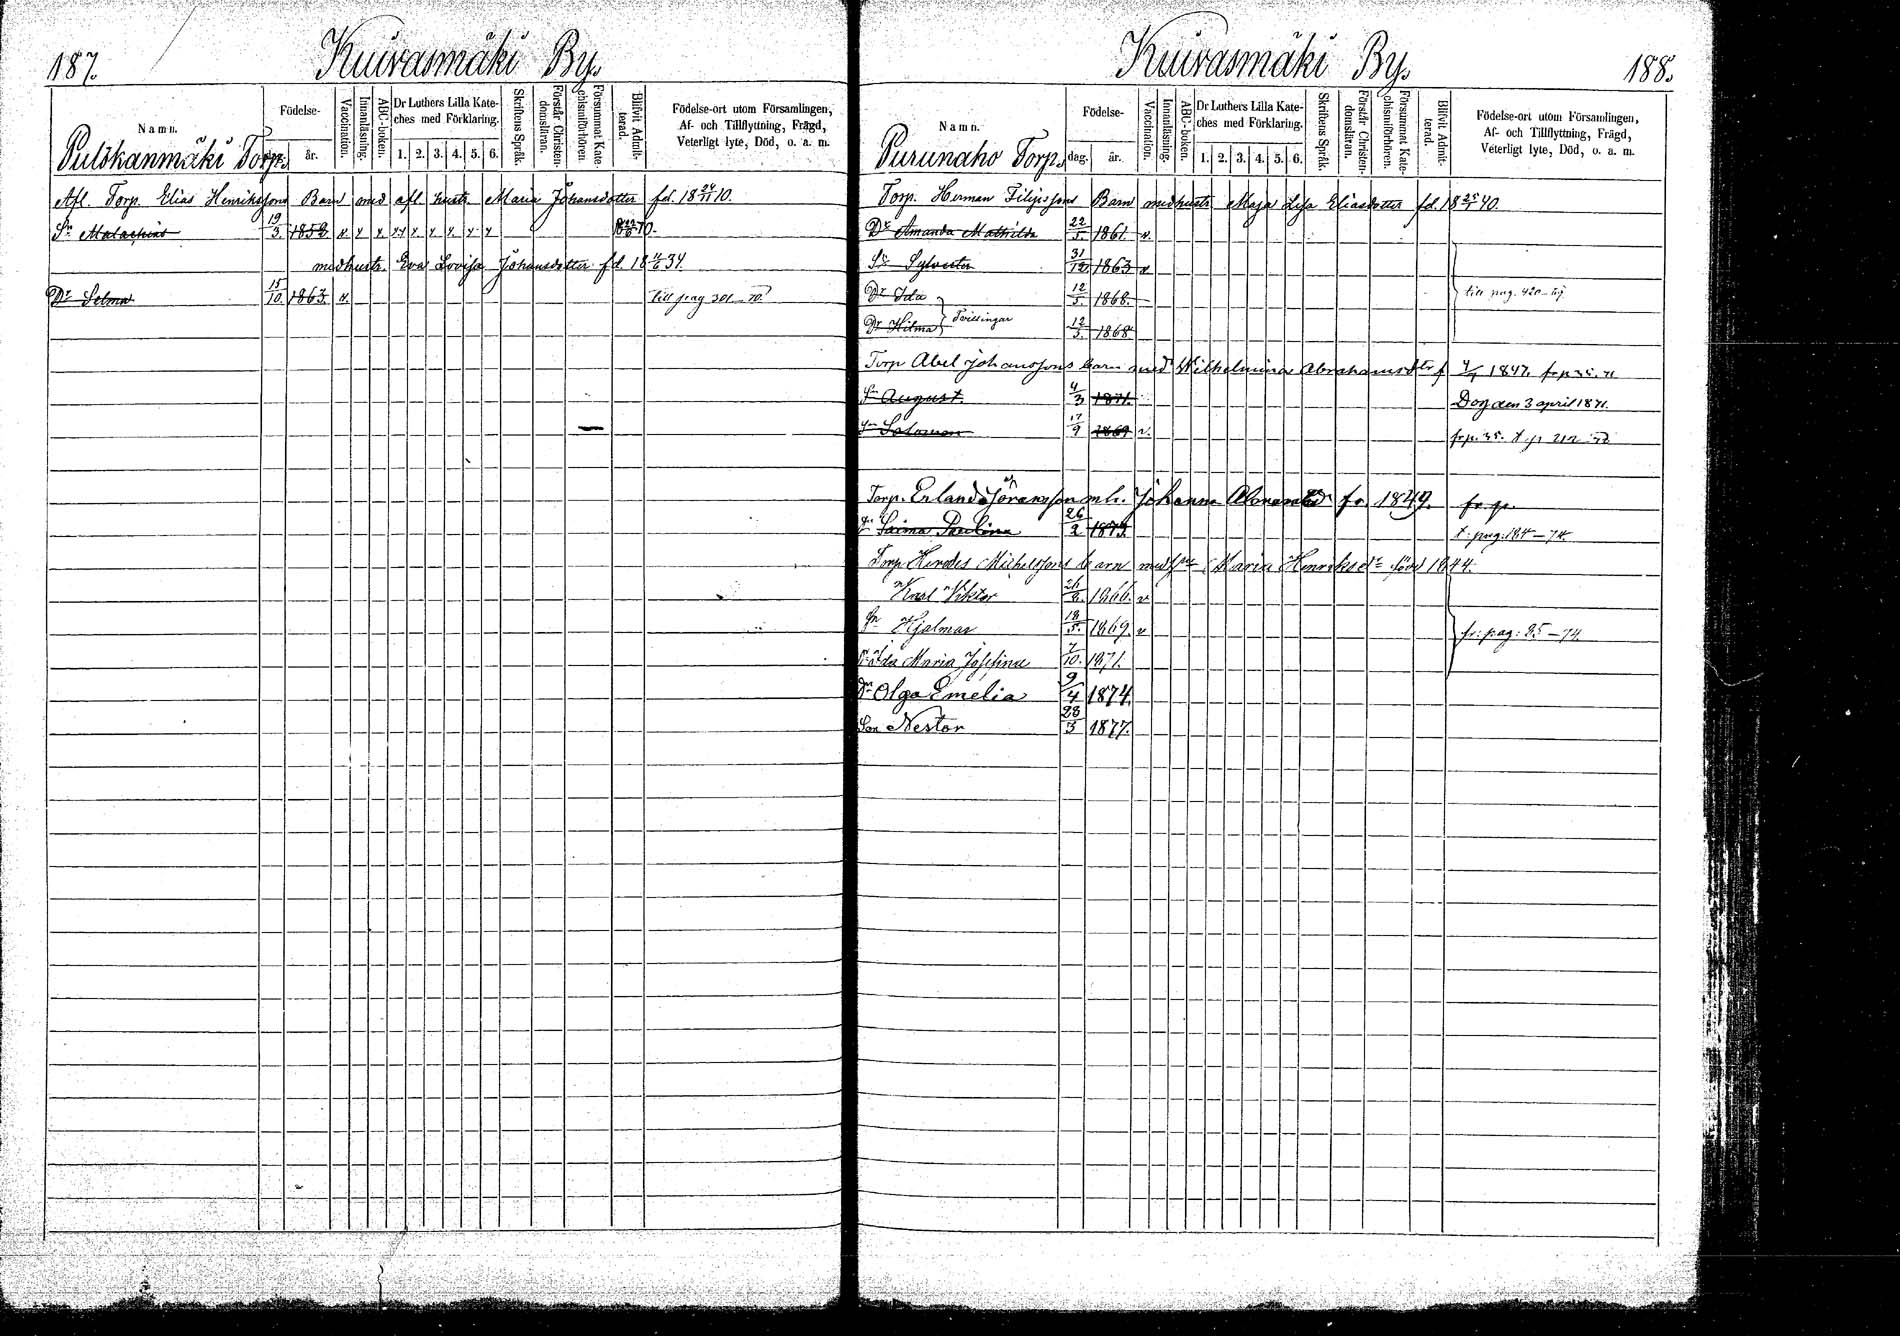 187.
Kuivasmäki By.
Namn.
Födelse-
år.
Vaccination.
Innanläsning.
ABC-boken.
Dr Luthers Lilla Kate-
ches med Förklaring.
1. 2. 3. 4. 5. 6.
Skriftens Språk.
Förstår Christen-
domsläran.
Försummat Kate-
chismiförhören.
Blifvit Admit-
terad.
Födelse-ort utom Församlingen,
Af- och Tillflyttning, Frägd,
Veterligt lyte, Död, o. a. m.
Pulskanmäki Torp.
Afl. Torp. Elias Henrikssons Barn med afl. hustr. Maria Johansdotter fd. 18 24/11 10.
Sn Malachias 19/3. 1852.
medhustr. Eva Lovisa Johansdotter fd. 18 34.
Dr Selma 15/10. 1863. v.
till pag 301 – 70.
Kuivasmäki By.
188.
Namn.
Födelse-
dag. år.
Vaccination.
Innanläsning.
ABC-boken.
Dr Luthers Lilla Kate-
ches med Förklaring.
1. 2. 3. 4. 5. 6.
Skriftens Språk.
Förstår Christen-
domsläran.
Försummat Kate-
chismiförhören.
Blifvit Admit-
terad.
Födelse-ort utom Församlingen,
Af- och Tillflyttning, Frägd,
Veterligt lyte, Död, o. a. m.
Purunaho Torp.
Torp. Herman Filipssons Barn medhustr. Maja Lisa Eliasdotter fd. 18 25/1 40.
Dr Amanda Mathilda 22/5. 1861. v.
Sn Sylvester 31/12. 1863 v
Dr Ida 12/5. 1868.
till pag. 420
Dr Hilma Tvillingar 12/5. 1868
Torp Abel Johanssons barn med Wilhelmina Abrahamsdtr f 1847.
Sn August 4/3 1871. Dog den 3 april 1871.
Sn Salomon 17/9 1869 v. frp. 35.
Torp. Erland Göransson mh. Johanna fr. 1849. fr. p.
Dr Saima Paulina 26/2 1873. t. pag: 184 – 74.
Torp Herodes Michelssons barn med Maria Henriksdr född 1844.
Karl Viktor 26/8. 1866. v
Sn Hjalmar 18/5. 1869. v fr: pag: 85 – 74
Dr Ida Maria Josefina 7/10. 1871.
Dr Olga Emelia 9/4 1874.
Son Nestor 28/3 1877.